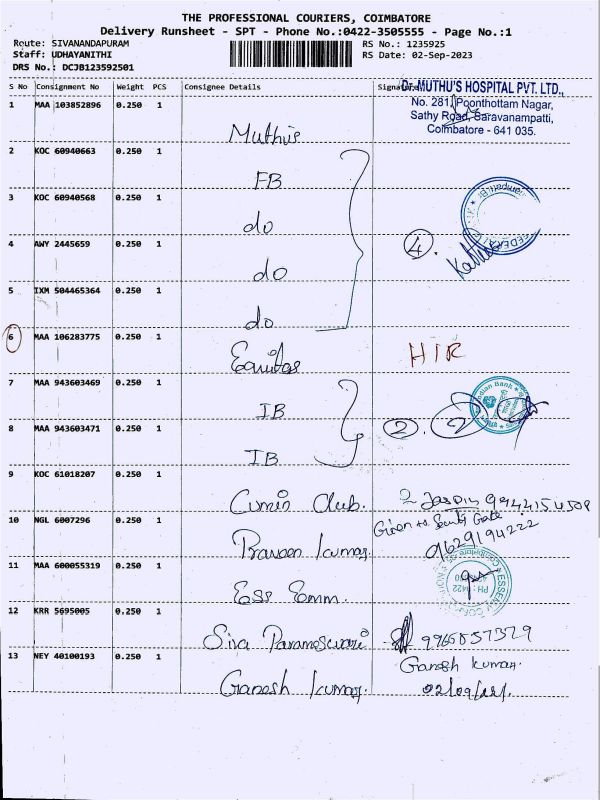 THE PROFESSIONAL COURIERS, COIMBATORE
Delivery Runsheet - SPT - Phone No.:0422-3505555 - Page No.:1
Route: SIVANANDAPURAM
RS No.: 1235925
Staff: UDHAYANITHI
RS Date: 02-Sep-2023
DRS No.: DCJB123592501
S No Consignment No Weight PCS Consignee Details Signature
Dr. MUTHU'S HOSPITAL PVT. LTD.,
No. 281, Poonthottam Nagar,
Sathy Road, Saravanampatti,
Coimbatore - 641 035.
1 MAA 103852896 0.250 1 Muthus
2 KOC 60940663 0.250 1 FB
3 KOC 60940568 0.250 1 do
4 AWY 2445659 0.250 1 do
4.
5 IXM 504465364 0.250 1 do
6 MAA 106283775 0.250 1 Equitas HIR
7 MAA 943603469 0.250 1 IB
Indian Bank
8 MAA 943603471 0.250 1 IB
2. 2
9 KOC 61018207 0.250 1 Cumin Club.
Given to Security Gate
10 NGL 6007296 0.250 1 Praveen Kumar. 9629194222
11 MAA 600055319 0.250 1 Ess Emm.
PH : 0422
12 KRR 5695005 0.250 1 Siva Parameswari
13 NEY 40100193 0.250 1 Ganesh Kumar.
Ganesh Kumar.